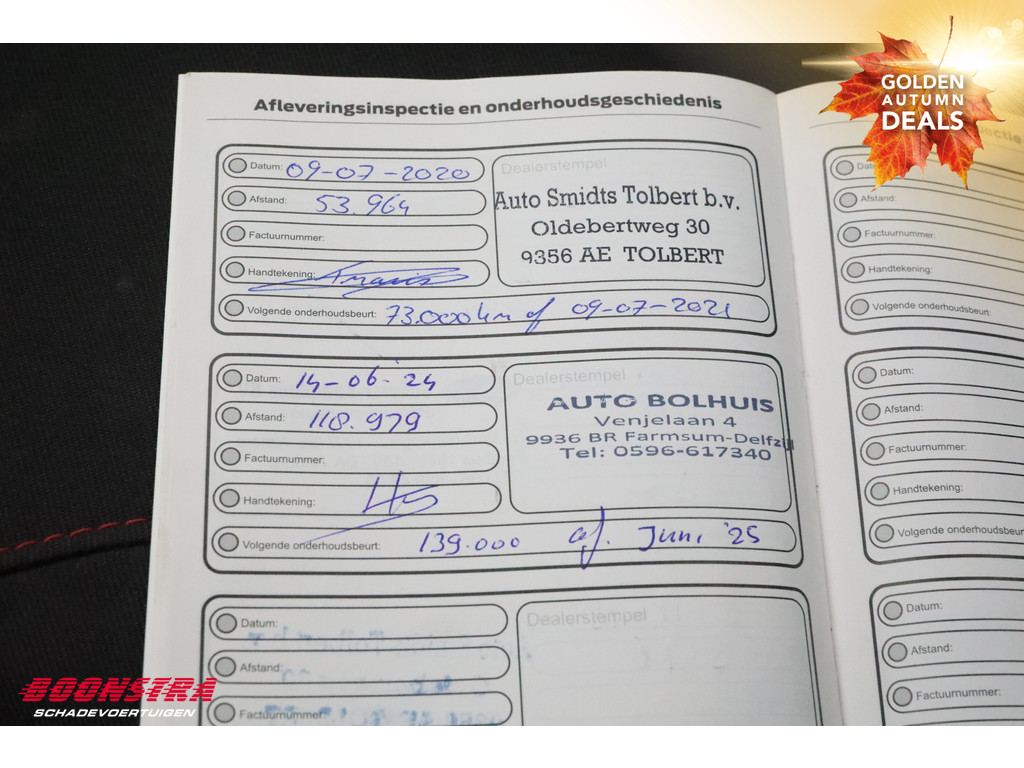 GOLDEN
AUTUMN
DEALS
Afleveringsinspectie en onderhoudsgeschiedenis
Datum: 09-07-2020
Afstand: 53.964
Factuurnummer:
Handtekening:
Volgende onderhoudsbeurt: 73.000 km of 09-07-2021
Dealerstempel
Auto Smidts Tolbert b.v.
Oldebertweg 30
9356 AE TOLBERT
Datum: 14-06-24
Afstand: 118.979
Factuurnummer:
Handtekening:
Volgende onderhoudsbeurt: 139.000 of. Juni '25
Dealerstempel
AUTO BOLHUIS
Venjelaan 4
9936 BR Farmsum-Delfzijl
Tel: 0596-617340
Datum:
Afstand:
Factuurnummer:
Dealerstempel
Datum:
Afstand:
Factuurnummer:
Handtekening:
Volgende onderhoudsbeurt:
Datum:
Afstand:
Factuurnummer:
Handtekening:
Volgende onderhoudsbeurt:
Datum:
Afstand:
Factuurnummer:
BOONSTRA
SCHADEVOERTUIGEN